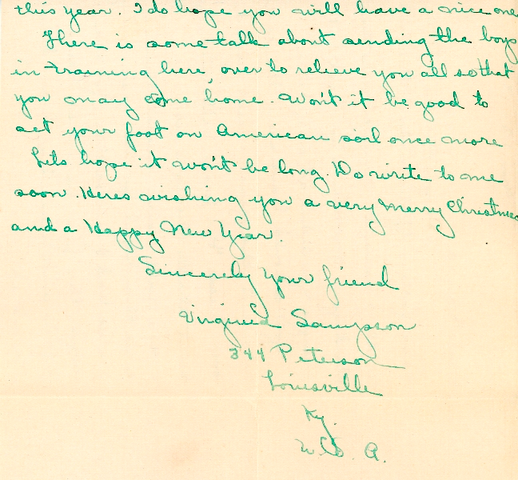 this year. I do hope you will have a nice one
There is some talk about sending the boys
in training here, over to relieve you all so that
you may come home. Won't it be good to
set your foot on American soil once more
Lets hope it won't be long. Do write to me
soon. Heres wishing you a very Merry Christmas
and a Happy New Year.
Sincerely your friend
Virginia Sampson
344 Peterson
Louisville
Ky.
U.S. A.